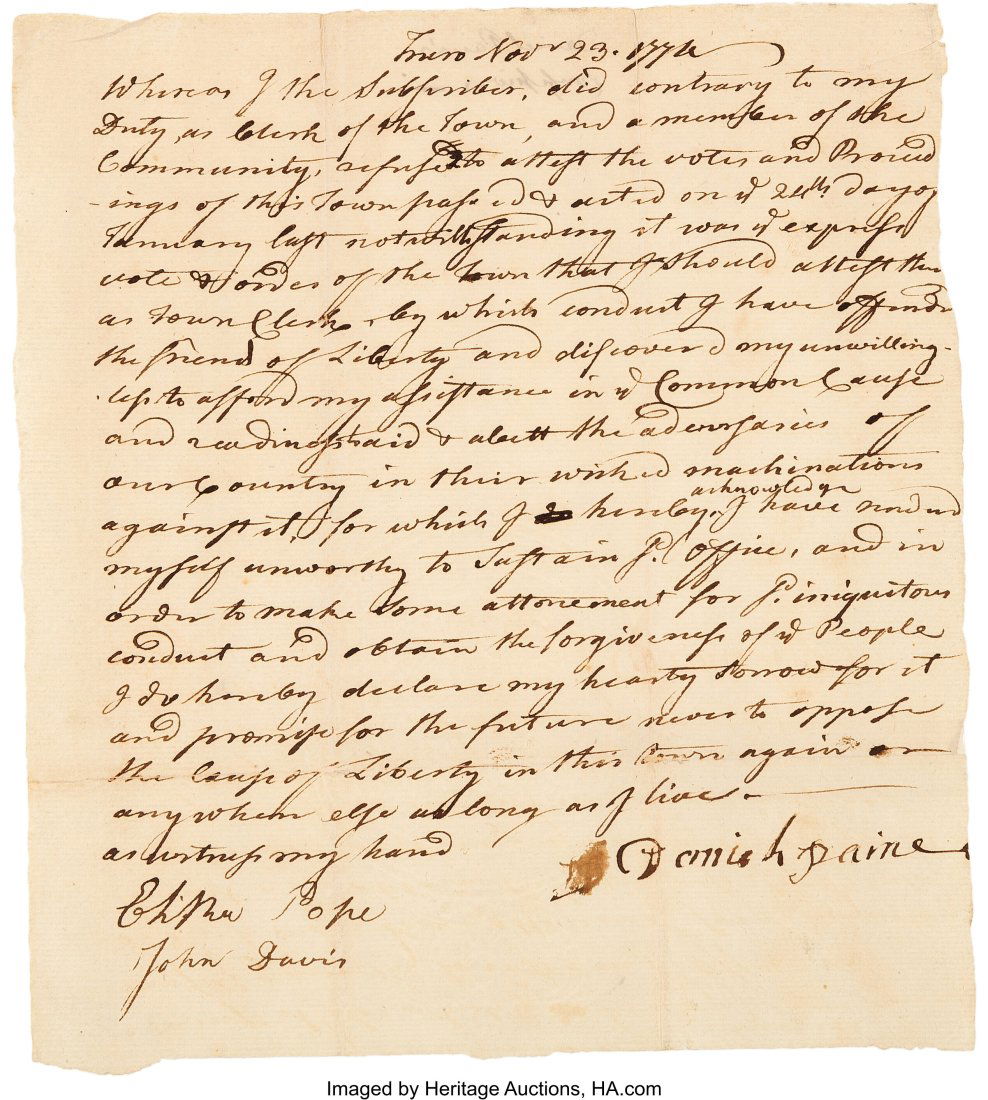 Truro Novr 23. 1774
Whereas I the Subscriber, did contrary to my
Duty, as Clerk of the Town, and a member of the
Community, refuse to attest the votes and Proceed
-ings of this Town passed & acted on ye 24th day of
January last notwithstanding it was ye express
vote & order of the Town that I should attest them
as Town Clerk, by which conduct I have offended
the friends of Liberty and discovered my unwilling-
-ess to afford my assistance in ye Common Cause
and readiness to aid & abett the adversaries of
our Country in their wicked machinations
against it, for which I hereby acknowledge I have rendered
myself unworthy to Sustain sd. office, and in
order to make some attonement for sd. iniquitous
conduct and obtain the forgiveness of ye People
I do hereby declare my hearty Sorrow for it
and promise for the future never to oppose
the Cause of Liberty in this town again or
any where else as long as I live.
as witness my hand
Daniel Paine
Elisha Pope
John Davis
Imaged by Heritage Auctions, HA.com